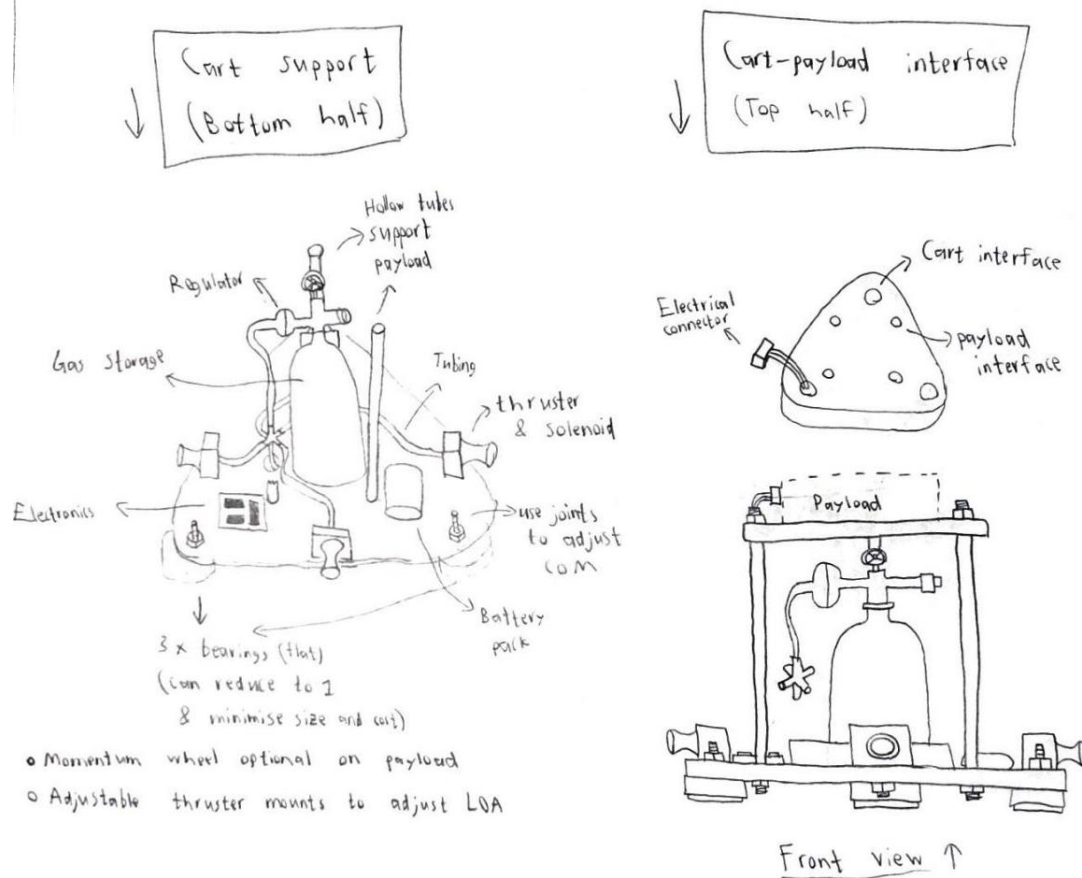 Cart support
(Bottom half)
Hollow tubes
support
payload
Regulator
Gas storage
Tubing
thruster
& solenoid
Electronics
use joints
to adjust
COM
Battery
pack
3 x bearings (flat)
(can reduce to 1
& minimise size and cost)
Momentum wheel optional on payload
Adjustable thruster mounts to adjust LOA
Cart-payload interface
(Top half)
Cart interface
Electrical
connector
payload
interface
Payload
Front view